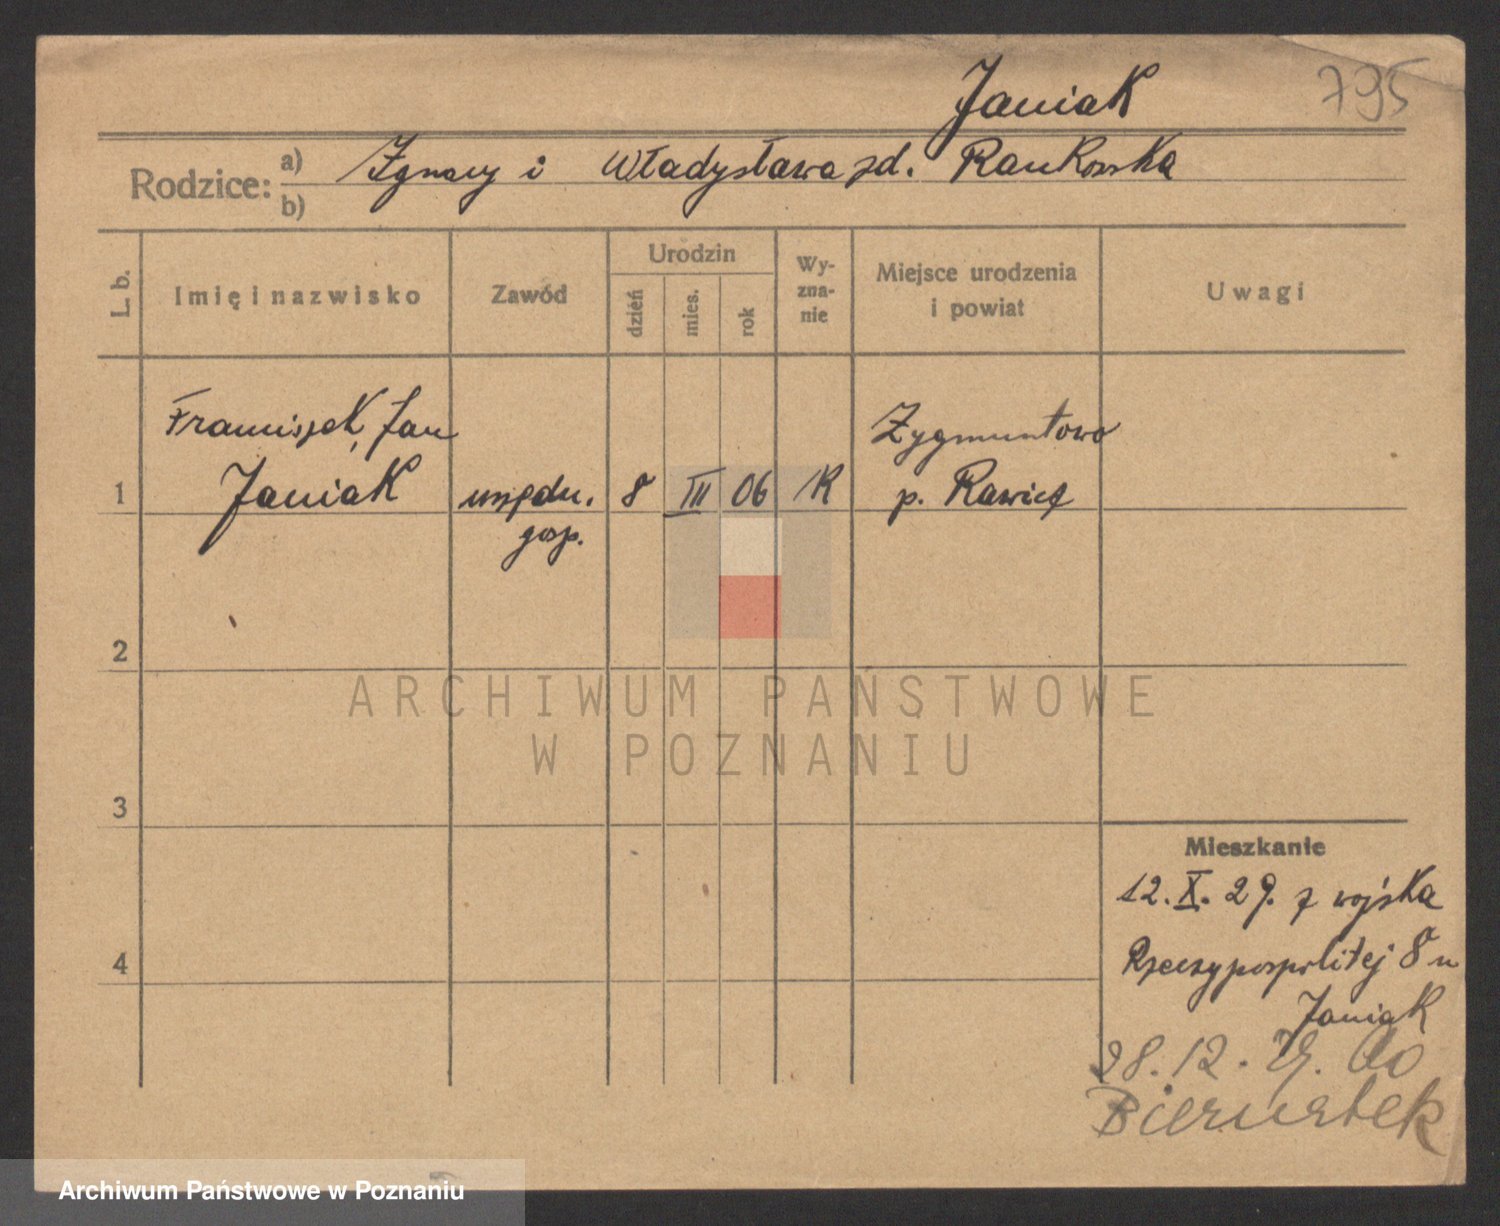 Janiak
795
Rodzice:
a) Ignacy i Władysława zd. Rankowska
b)
L. b.
Imię i nazwisko
Zawód
Urodzin
dzień
mies.
rok
Wy-
zna-
nie
Miejsce urodzenia
i powiat
Uwagi
Franciszek, Jan
Zygmuntowo
1 Janiak urzędn. 8 III 06 K p. Rawicz
gosp.
2
ARCHIWUM PAŃSTWOWE
W POZNANIU
3
Mieszkanie
12. X. 29. z wojska
4
Rzeczypospolitej 8 u
Janiak
28. 12. 29. do
Archiwum Państwowe w Poznaniu